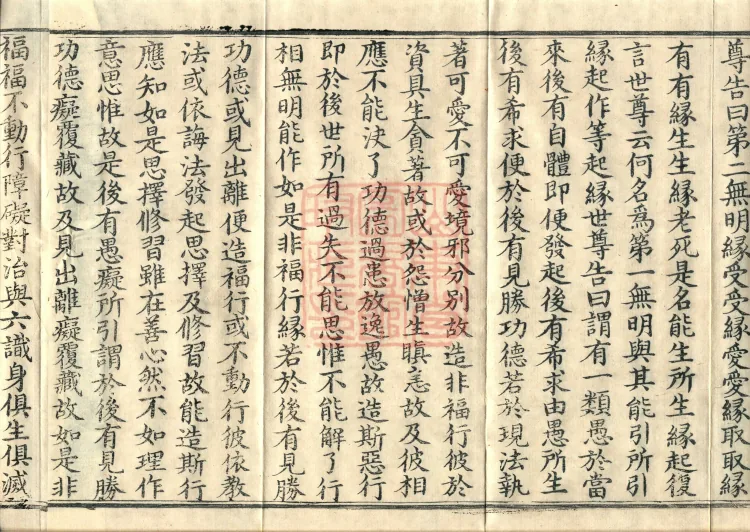 尊告曰第二無明緣受受緣愛愛緣取取緣
有有緣生生緣老死是名能生所生緣起復
言世尊云何名為第一無明與其能引所引
緣起作等起緣世尊告曰謂有一類愚於當
來後有自體即便發起後有希求由愚所生
後有希求便於後有見勝功德若於現法執
著可愛不可愛境邪分別故造非福行彼於
資具生貪著故或於怨憎生瞋恚故及彼相
應不能決了功德過患放逸愚故造斯惡行
即於後世所有過失不能思惟不能解了行
相無明能作如是非福行緣若於後有見勝
功德或見出離便造福行或不動行彼依教
法或依誨法發起思擇及修習故能造斯行
應知如是思擇修習雖在善心然不如理作
意思惟故是後有愚癡所引謂於後有見勝
功德癡覆藏故及見出離癡覆藏故如是非
福福不動行障礙對治與六識身俱生俱滅